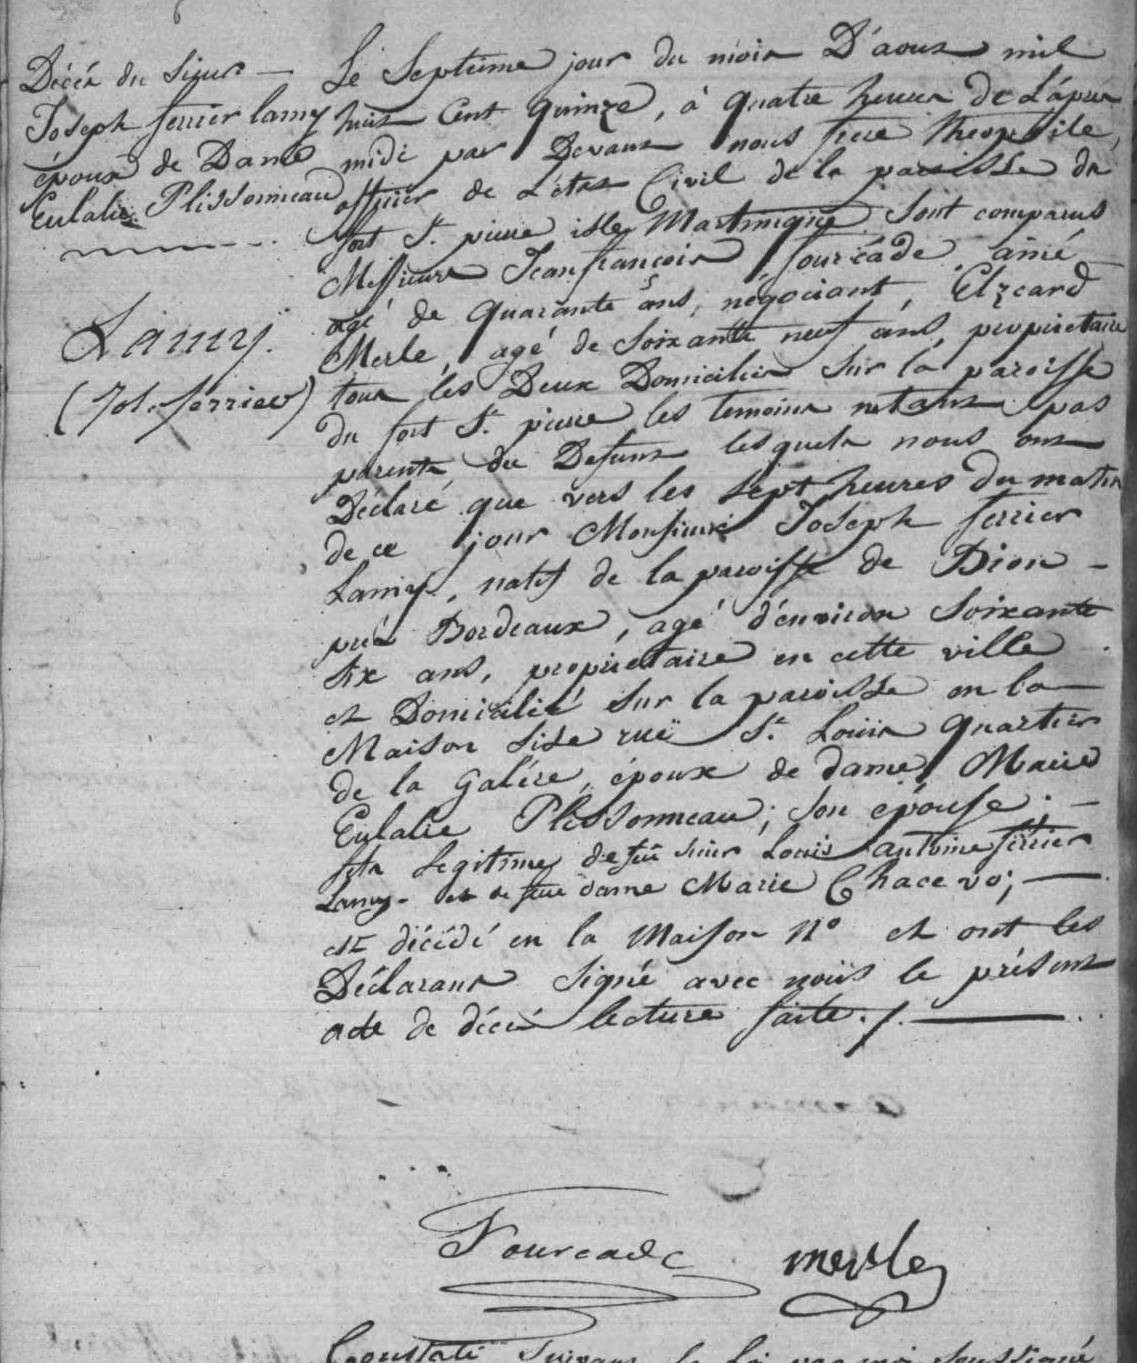 Décès du Sieur —
Joseph ferrier lamy
époux de Dame
Eulalie Plissonneau
Lamy.
(Jos. ferrier)
Le Septieme jour du mois D'aoust mil
huit Cent quinze, à quatre heures de L'après
midi par Devant nous frere Theophile,
officier de L'état Civil de la paroisse du
fort St. pierre isle Martinique Sont comparus
Messieurs Jean françois fourcade ainé
agé de quarante ans, négociant, Elzeard
Merle, agé de Soixante neuf ans, propriétaire
tous les Deux Domiciliés Sur la paroisse
du fort St. pierre les temoins n'etant pas
parents du Defunt lesquels nous ont
Déclaré que vers les Sept heures du matin
de ce jour Monsieur Joseph ferrier
Lamy, natif de la paroisse de Dion —
près Bordeaux, agé d'environ Soixante
six ans, propriétaire en cette ville
et Domicilié Sur la paroisse en la
Maison Sise ruë St. Louis quartier
de la Galére, époux de dame Marie
Eulalie Plissonneau; Son épouse; —
fils Legitime de feu sieur Louis antoine ferrier
Lamy - et de feue dame Marie Chacevo; —
est décédé en la Maison N° et ont les
Déclarans Signé avec noüs le présent
acte de décès lecture faite./. —
Fourcade
merle
Constaté Suivant la loi par moi soussigné